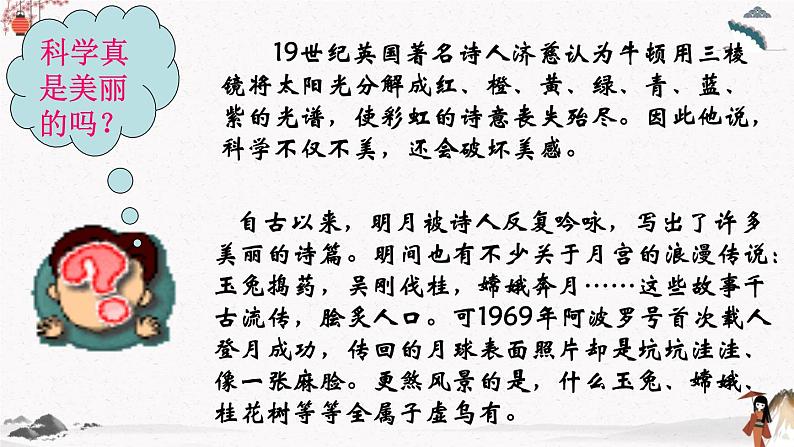 科学真
是美丽
的吗？
19世纪英国著名诗人济慈认为牛顿用三棱
镜将太阳光分解成红、橙、黄、绿、青、蓝、
紫的光谱，使彩虹的诗意丧失殆尽。因此他说，
科学不仅不美，还会破坏美感。
自古以来，明月被诗人反复吟咏，写出了许多
美丽的诗篇。明间也有不少关于月宫的浪漫传说：
玉兔捣药，吴刚伐桂，嫦娥奔月……这些故事千
古流传，脍炙人口。可1969年阿波罗号首次载人
登月成功，传回的月球表面照片却是坑坑洼洼、
像一张麻脸。更煞风景的是，什么玉兔、嫦娥、
桂花树等等全属子虚乌有。